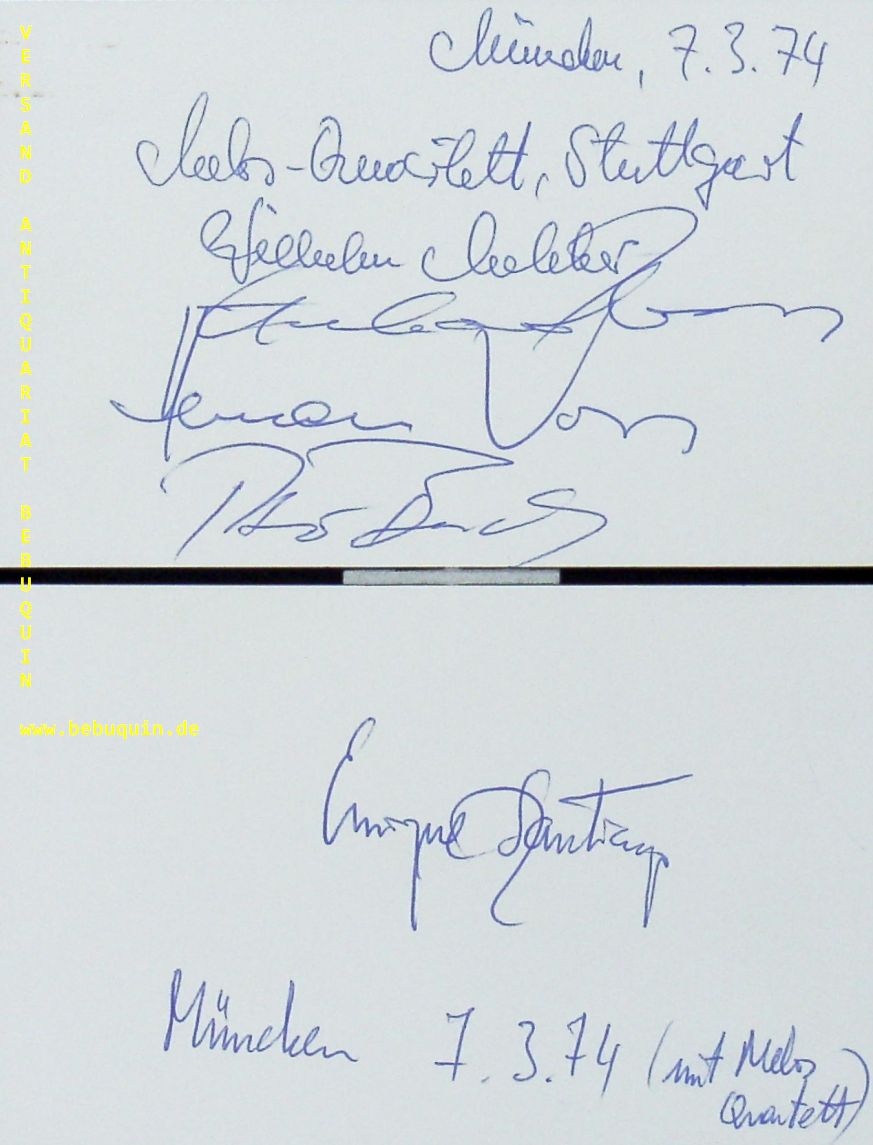 München, 7.3.74
Melos-Quartett, Stuttgart
Wilhelm Melcher
Gerhard Voss
Hermann Voss
Peter Buck
VERSAND ANTIQUARIAT BEBUQUIN
www.bebuquin.de
Enrique Santiago
München 7.3.74 (mit Melos
Quartett)